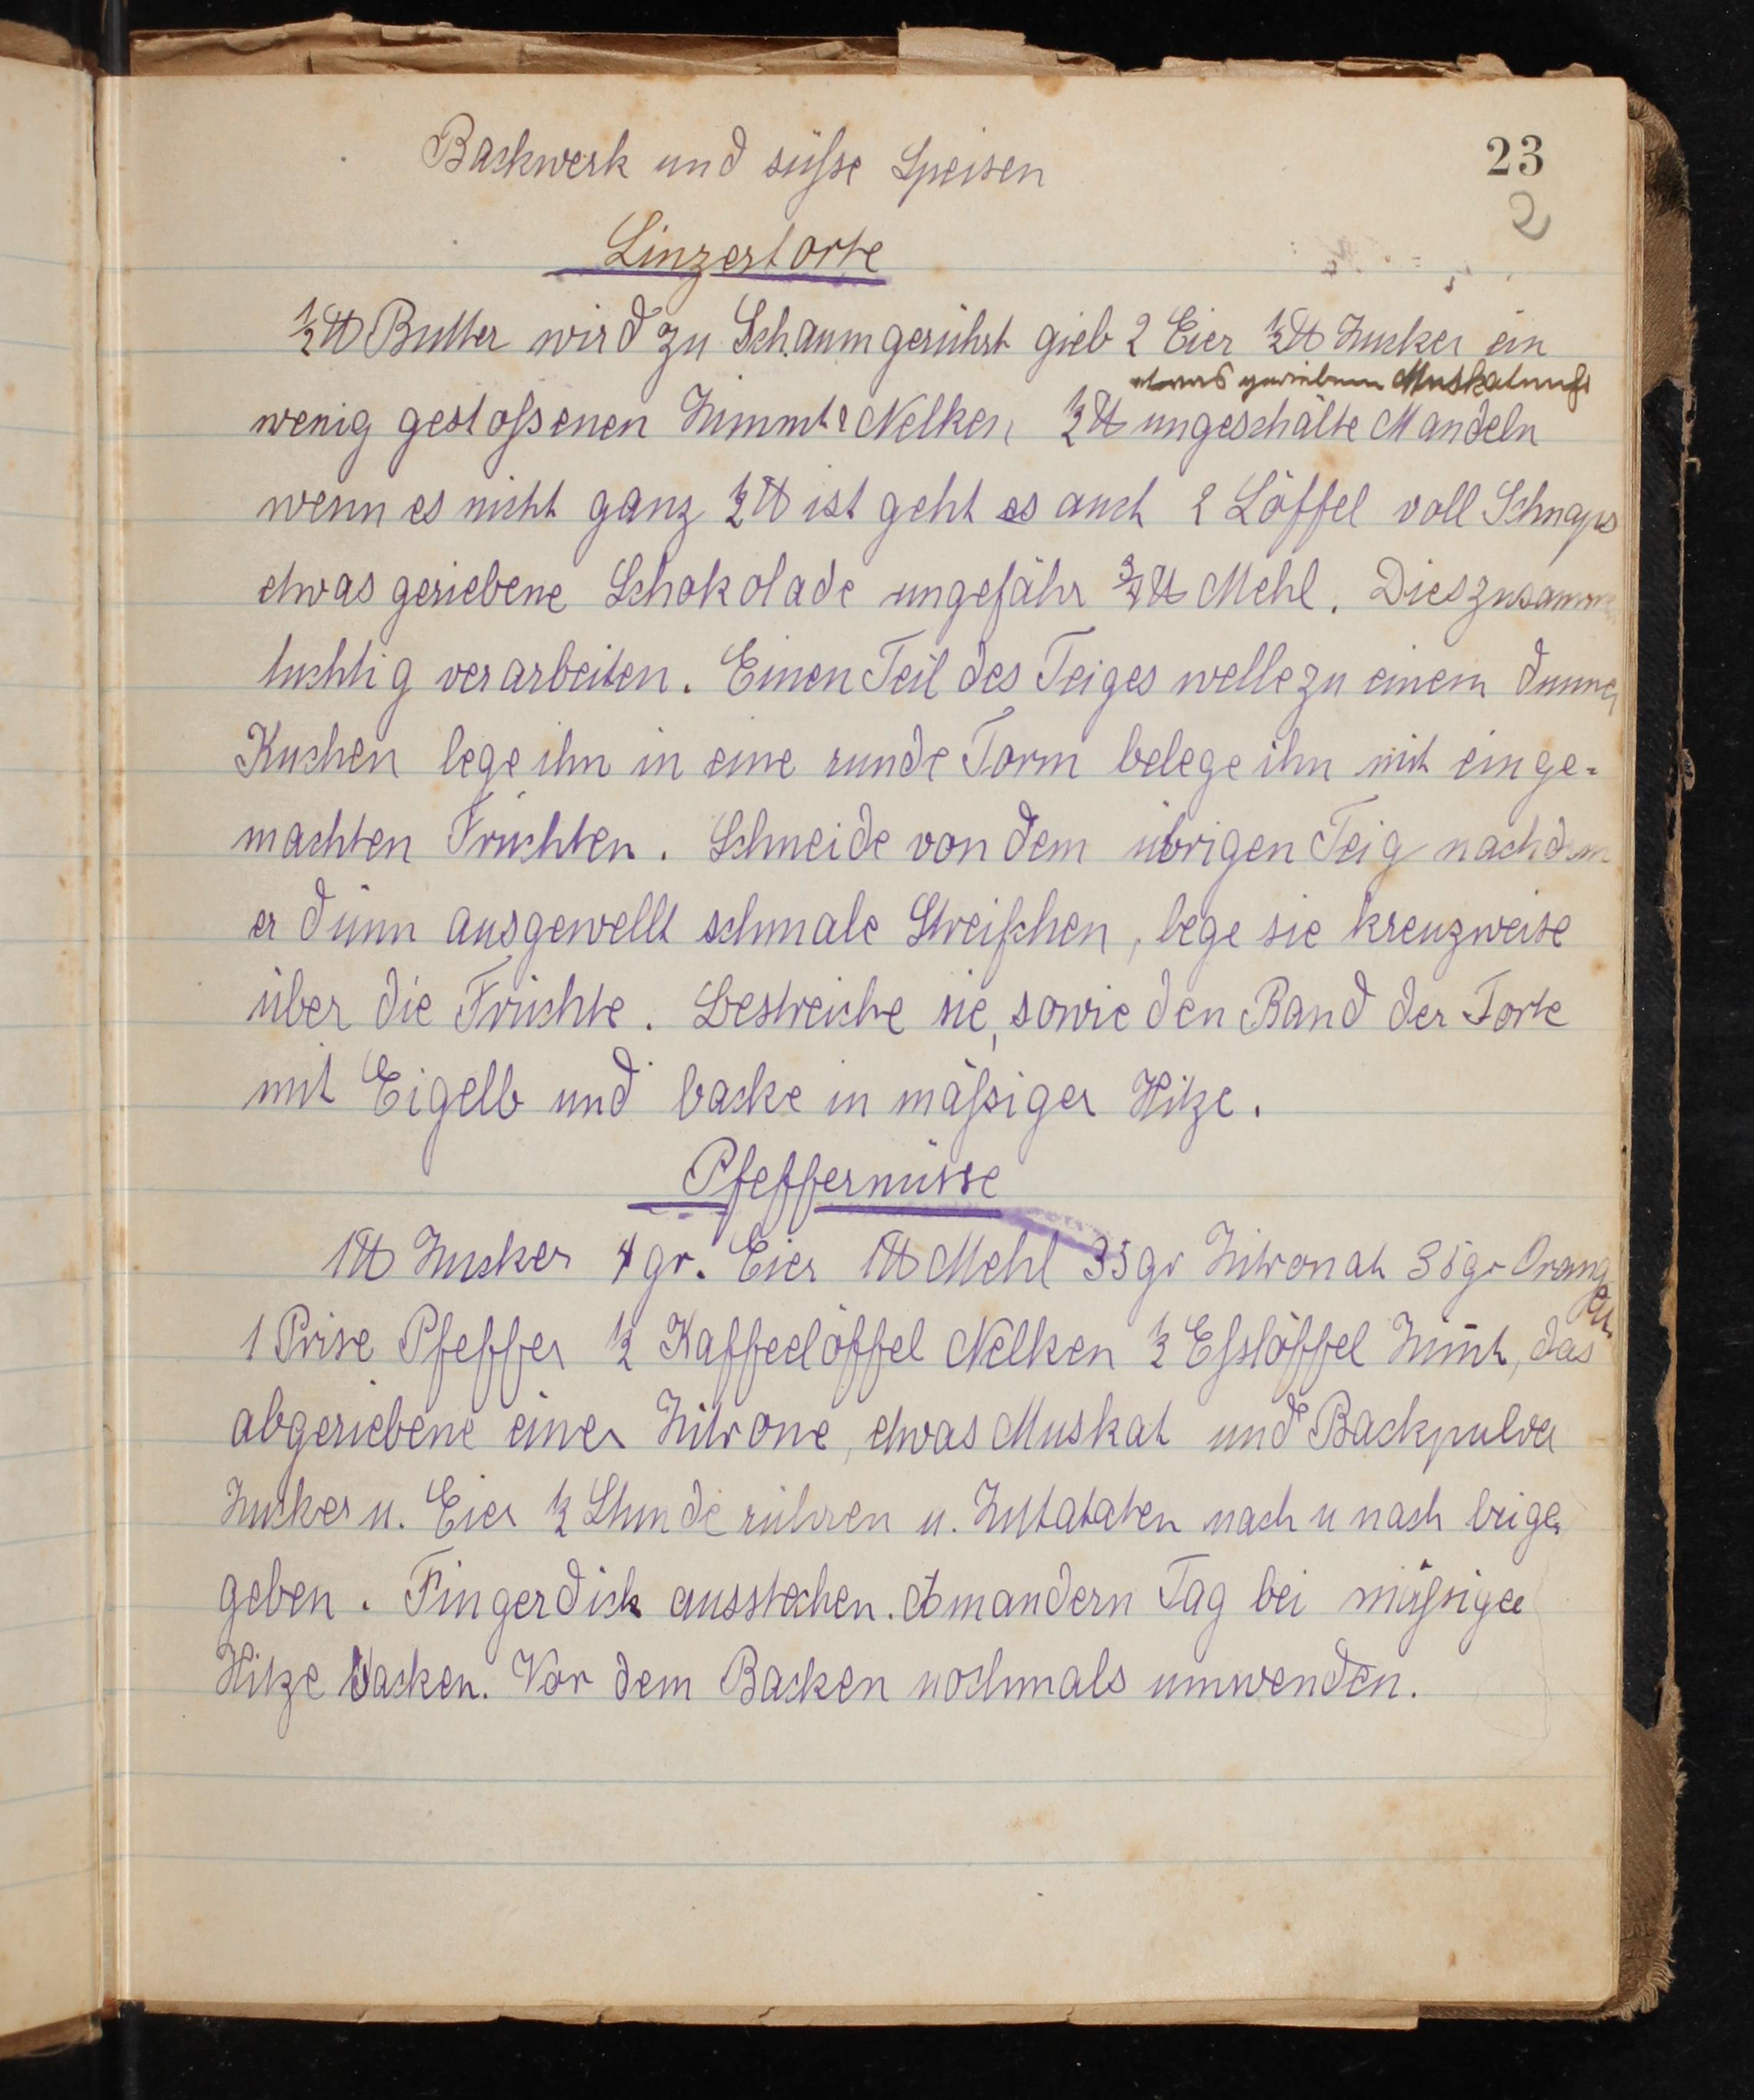 Backwerk und süsse Speisen
23
2
Linzertorte
½ ℔ Butter wird zu Schaum gerührt gieb 2 Eier ½ ℔ Zucker ein
etwas geriebene Muskatnuß
wenig gestoßenen Zimmt & Nelken ½ ℔ ungeschälte Mandeln
wenn es nicht ganz ½ ℔ ist geht es auch 2 Löffel voll Schnaps
etwas geriebene Schokolade ungefähr ¾ ℔ Mehl. Dies zusammen
tuchtig verarbeiten. Einen Teil des Teiges welle zu einem dunnen
Kuchen lege ihn in eine runde Form belege ihn mit einge=
machten Früchten. Schneide von dem übrigen Teig nachdem
er dünn ausgewellt schmale Streifchen, lege sie kreuzweise
über die Früchte. Bestreiche sie, sowie den Rand der Torte
mit Eigelb und backe in mäßiger Hitze.
Pfeffernüsse
1 ℔ Zucker 4 gr. Eier 1 ℔ Mehl 35 gr Zitronat 35 gr Orangeu
1 Prise Pfeffer ½ Kaffeelöffel Nelken ½ Eßlöffel Zim̄t, das
abgeriebene einer Zitrone, etwas Muskat und Backpulver
Zucker u. Eier ½ Stunde rühren u. Zutataten nach u nach beige
geben. Fingerdick ausstechen. Am andern Tag bei mäßiger
Hitze backen. Vor dem Backen nochmals umwenden.